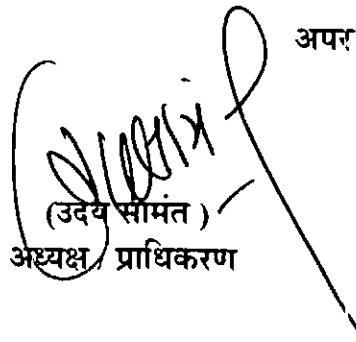 अपर
(उदय सामंत )
अध्यक्ष / प्राधिकरण